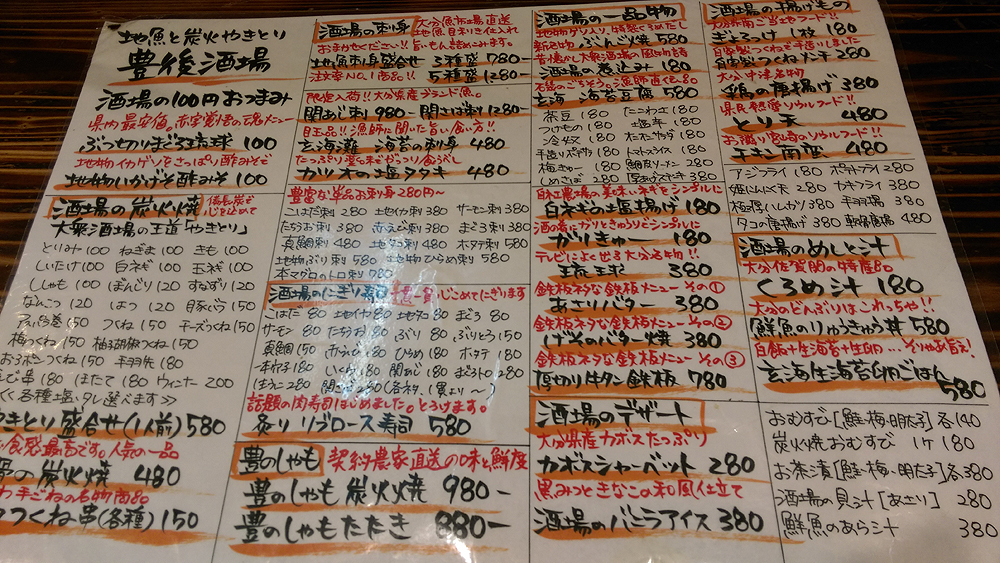 地魚と炭火やきとり
豊後酒場
酒場の100円おつまみ
県内最安価。赤字覚悟の魂メニュー
ぶっ切りまぐろ琉球 100
地物イカゲソをさっぱり酢みそで
地物いかげそ酢みそ 100
酒場の炭火火焼
備長炭で
心を込めて
大衆酒場の王道「やきとり」
とりみ 100 ねぎま 100 きも 100
しいたけ 100 白ネギ 100 玉ネギ 100
ししゃも 100 ぼんじり 120 すなずり 120
なんこつ 120 はつ 120 豚バラ 150
つくね 150 チーズつくね 150
梅つくね 150 柚子胡椒つくね 150
つくね 180 手羽先 180
えび串 180 ほたて 180 ウィンナー 200
各種塩・タレ選べます≫
やきとり盛合せ(1人前) 580
食感最高です。人気の一品
の炭火火焼 480
手ごねの名物商品
つくね串(各種) 150
酒場の刺身
大分魚市場直送
地魚、目利き仕入れ
おまかせください!!旨いもん詰め込みます。
地魚刺身盛合せ 3種盛 780-
注文率NO.1商品!! 5種盛 1280-
限定入荷!!大分県産ブランド魚。
関あじ刺 980- 関さば刺 1280-
目玉品!!漁師に聞いた旨い食い方!!
玄海灘 海苔の刺身 480
たっぷり薬味でがっつり食うべし
カツオの塩タタキ 480
豊富な単品お刺身280円〜
こはだ刺 280 地イカ刺 380 サーモン刺 380
たちうお刺 380 赤えび刺 380 まぐろ刺 380
真鯛刺 480 地タコ刺 480 ホタテ刺 580
地物ぶり刺 580 地物ひらめ刺 580
本マグロのトロ刺 780
酒場のにぎり寿司
心こめてにぎります
こはだ 80 地イカ 80 地タコ 80 あじ 80
サーモン 80 たちうお 80 ぶり 80 ぶりとろ 150
真鯛 150 赤えび 180 ひらめ 180 ホタテ 180
本穴子 180 いくら 180 関あじ 180 まぐろトロ 280
生うに 280 関さば 280 (各ネタ、1貫より〜)
話題の肉寿司はじめました。とろけます。
炙りリブロース寿司 580
豊のしゃも
契約農家直送の味と鮮度
豊のしゃも炭火火焼 980-
豊のしゃもたたき 880-
酒場の一品物
地物ダシ入り、特製くろめだし
新名物 ぶんご焼 580
昔懐かし大衆酒場の風物詩
酒場の煮込み 180
石鯛のごちそう。漁師直伝の品
玄海 海苔豆腐 580
茶豆 180 たこわさ 180
つけもの 180 塩辛 180
冷奴 180 たこキムチ 180
手造りポテサラ 180 トマトスライス 180
梅きゅう 180 鯛皮ソーメン 280
しめさば 280 厚焼き玉子 380
自社農場の美味いネギをシンプルに
白ネギの塩揚げ 180
酒の肴にガリときゅうりをシンプルに
がりきゅー 180
テレビによく出る大分名物!!
琉球 380
鉄板ネタな鉄板メニュー その①
あさりバター 380
鉄板ネタな鉄板メニュー その②
げそのバター焼 380
鉄板ネタな鉄板メニュー その③
厚切り牛タン鉄板 780
酒場のデザート
大分県産カボスたっぷり
カボスシャーベット 280
黒みつときなこの和風仕立て
酒場のバニラアイス 380
酒場の揚げもの
大分県南ご当地フード!!
ぎょろっけ 1枚 180
自家製つくねを手造りしました
自家製つくねメンチ 280
大分中津名物
鶏の唐揚げ 380
県民熱愛ソウルフード!!
とり天 480
お隣り宮崎のソウルフード!!
チキン南蛮 480
アジフライ 180 ポテトフライ 280
姫にんにく天 280 カキフライ 380
極厚ハムカツ 380 手羽揚 380
タコの唐揚げ 380 軟骨唐揚 480
酒場のめしと汁
大分佐賀関の特産品
くろめ汁 180
大分のどんぶりはこれっちゃ!!
鮮魚のりゅうきゅう丼 580
白飯+生海苔+生卵…そりゃあ旨え!
玄海生海苔卵ごはん 580
おむすび[鮭・梅・明太子]各140
炭火焼おむすび 1ケ 180
お茶漬[鮭・梅・明太子]各380
酒場の貝汁[あさり] 280
鮮魚のあら汁 380